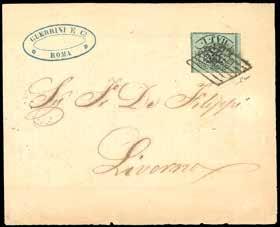 GUERRINI E C.
ROMA
Sig. F. De Filippi
Livorno